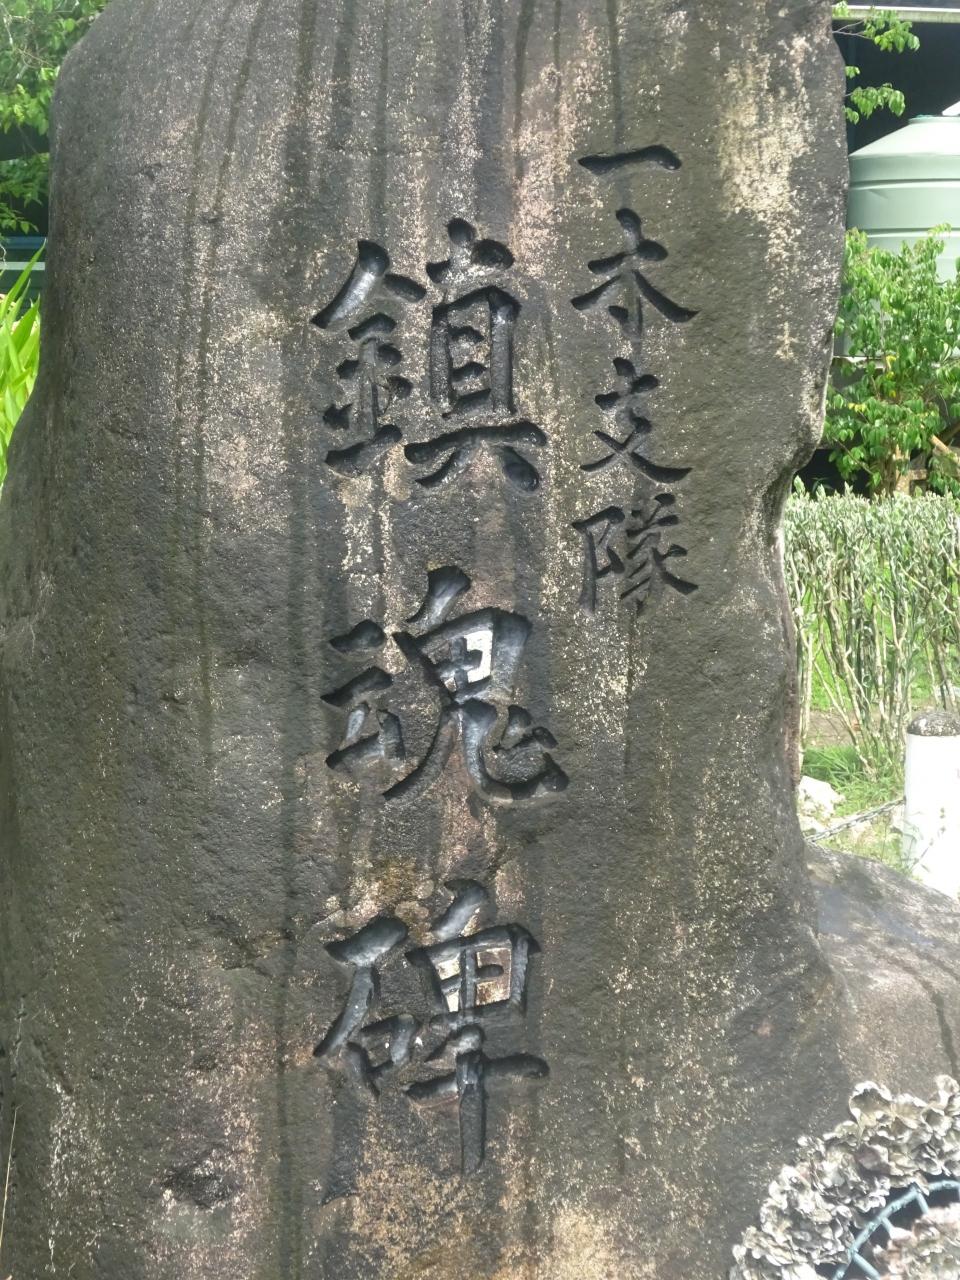 一木支隊
鎮魂碑